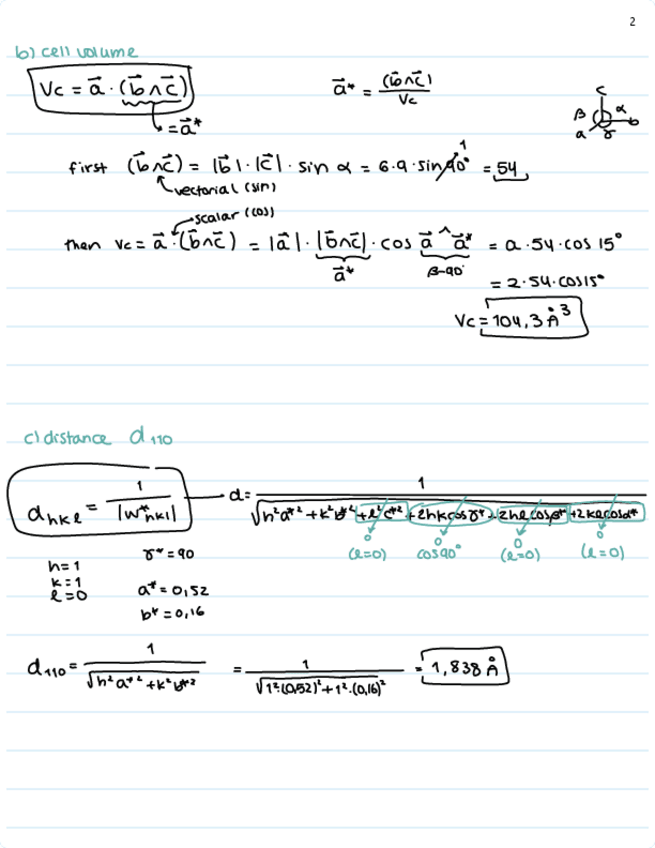 2
b) cell volume
Vc = a⃗ · (b⃗ ∧ c⃗)
= a⃗*
a⃗* = (b⃗∧c⃗) / Vc
c
β α
b
a γ
first (b⃗∧c⃗) = |b⃗| · |c⃗| · sin α = 6·9·sin 90° = 54
1
vectorial (sin)
scalar (cos)
then Vc = a⃗ · (b⃗∧c⃗) = |a⃗| · |b⃗∧c⃗| · cos a⃗ ^ a⃗* = a · 54 · cos 15°
a⃗* β-90°
= 2·54·cos15°
Vc = 104,3 Å³
c) distance d₁₁₀
d hkl = 1 / |w* hkl| d = 1 / √h²a*² + k²b*² + l²c*² + 2hkcosγ* + 2hlcosβ* + 2klcosα*
0 0 0 0
(l=0) cos90° (l=0) (l=0)
h=1 γ* = 90
k=1 a* = 0,52
l=0 b* = 0,16
d₁₁₀ = 1 / √h²a*² + k²b*² = 1 / √1²·(0,52)² + 1²·(0,16)² = 1,838 Å